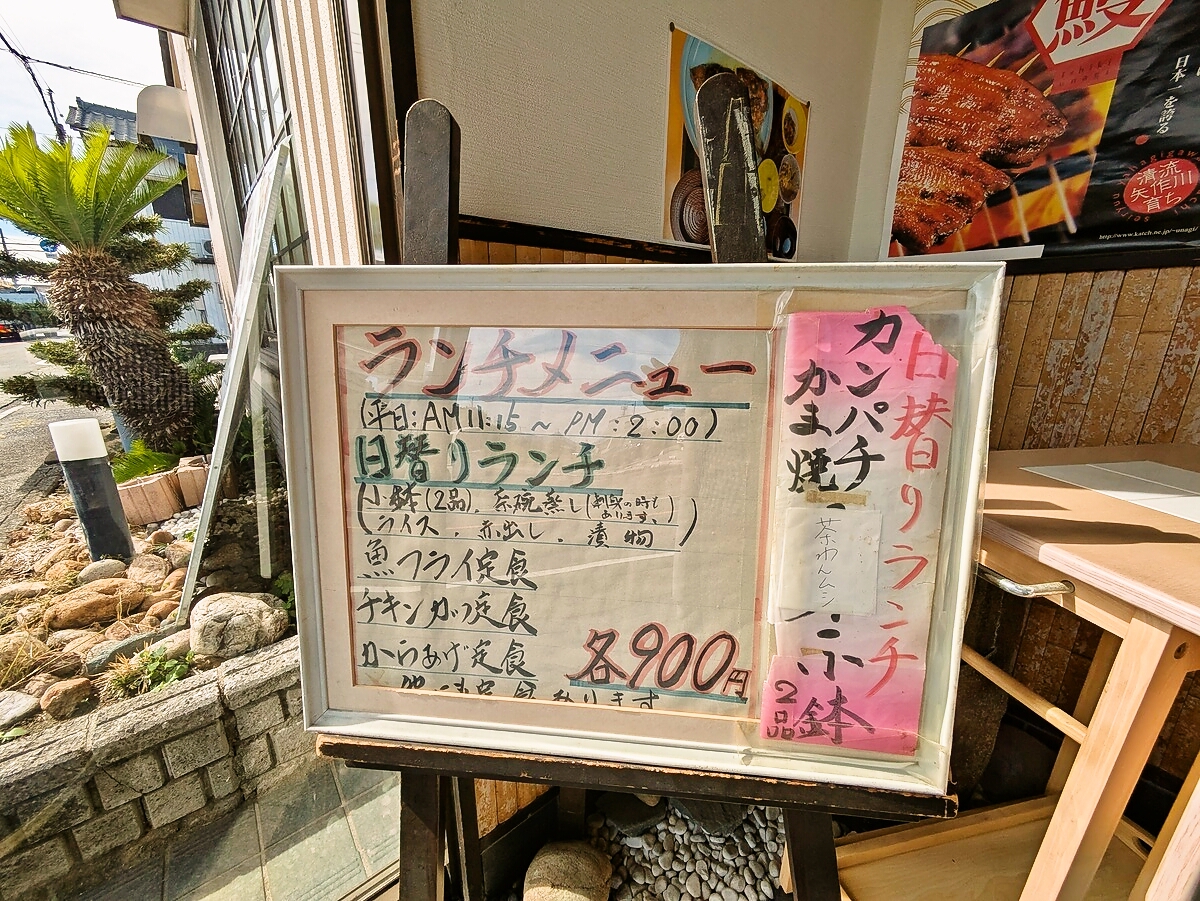 ランチメニュー
(平日:AM11:15 ~ PM:2:00)
日替りランチ
小鉢(2品)、茶碗蒸し(刺身の時もあります。)
ライス、赤出し、漬物
魚フライ定食
チキンかつ定食
からあげ定食
各900円
あります
日替りランチ
カンパチ
かま焼
茶わんムシ
小鉢
2品
鰻
日本一を誇る
清流
矢作川
育ち
http://www.katch.ne.jp/~unagi/